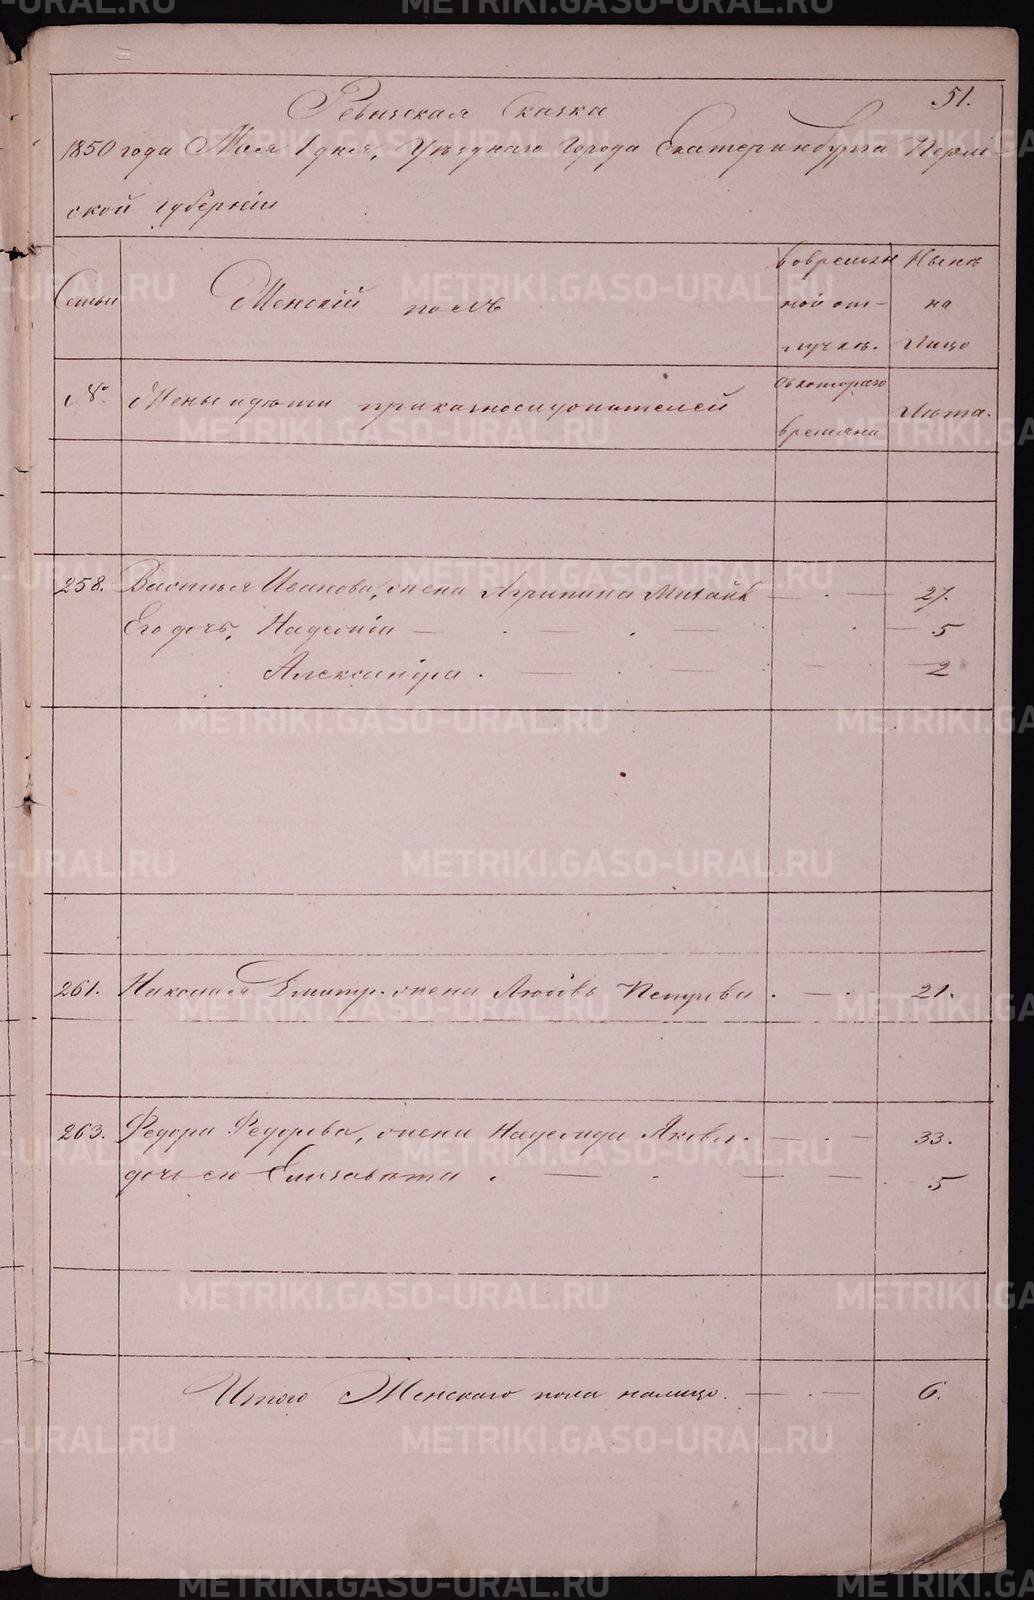 51.
Ревизская Сказка
1850 года Мая 1 дня, Уезднаго Города Екатеринбурга Перм-
ской губернiи
Семьи
Женскiй полъ
Во времен
ной от-
лучкѣ.
Нынѣ
на
Лицо
№
Жены и дѣти приказнослужителей
Съ котораго
времяни
Лѣта.
258. Василья Иванова, жена Агрипина Михайл — . — 27.
Его дочь, Надежда — . — . — . — 5
Александра . — . — . — 2
261. Николая Дмитр. жена Любовь Петрова . — . 21.
263. Федора Федорова, жена Надежда Яковл. — . — 33.
дочь его Елизавета . — . — — . 5
Итого Женскаго пола налицо. — . — 6.
METRIKI.GASO-URAL.RU